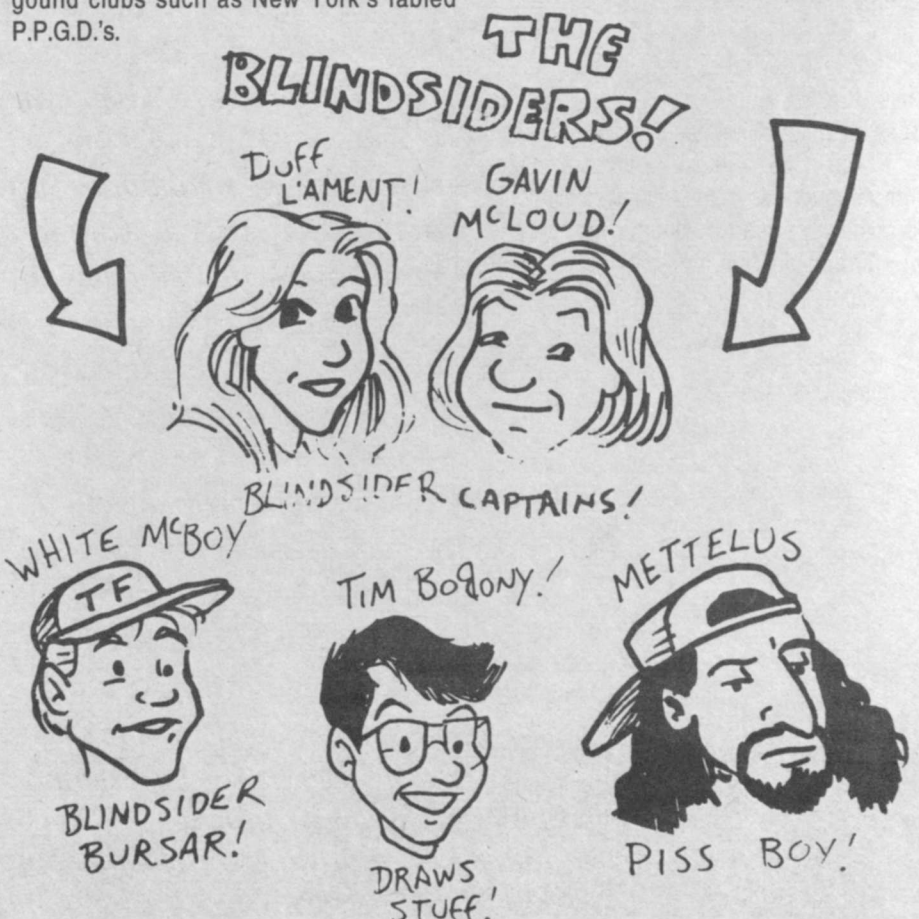 gound clubs such as New York's fabled
P.P.G.D.'s.
THE
BLINDSIDERS!
Duff
L'AMENT!
GAVIN
McLOUD!
BLINDSIDER CAPTAINS!
WHITE McBOY
TF
BLINDSIDER
BURSAR!
TIM BOGONY!
DRAWS
STUFF!
METTELUS
PISS BOY!